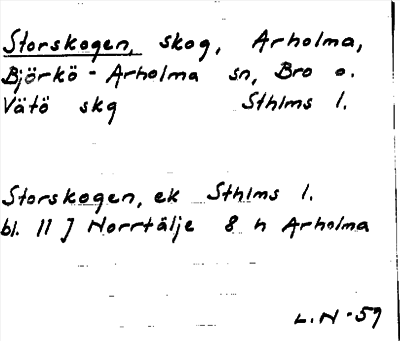 Storskogen, skog, Arholma,
Björkö - Arholma sn, Bro o.
Vätö skg Sthlms l.
Storskogen, ek Sthlms l.
bl. 11 J Norrtälje 8 h Arholma
L.N - 59